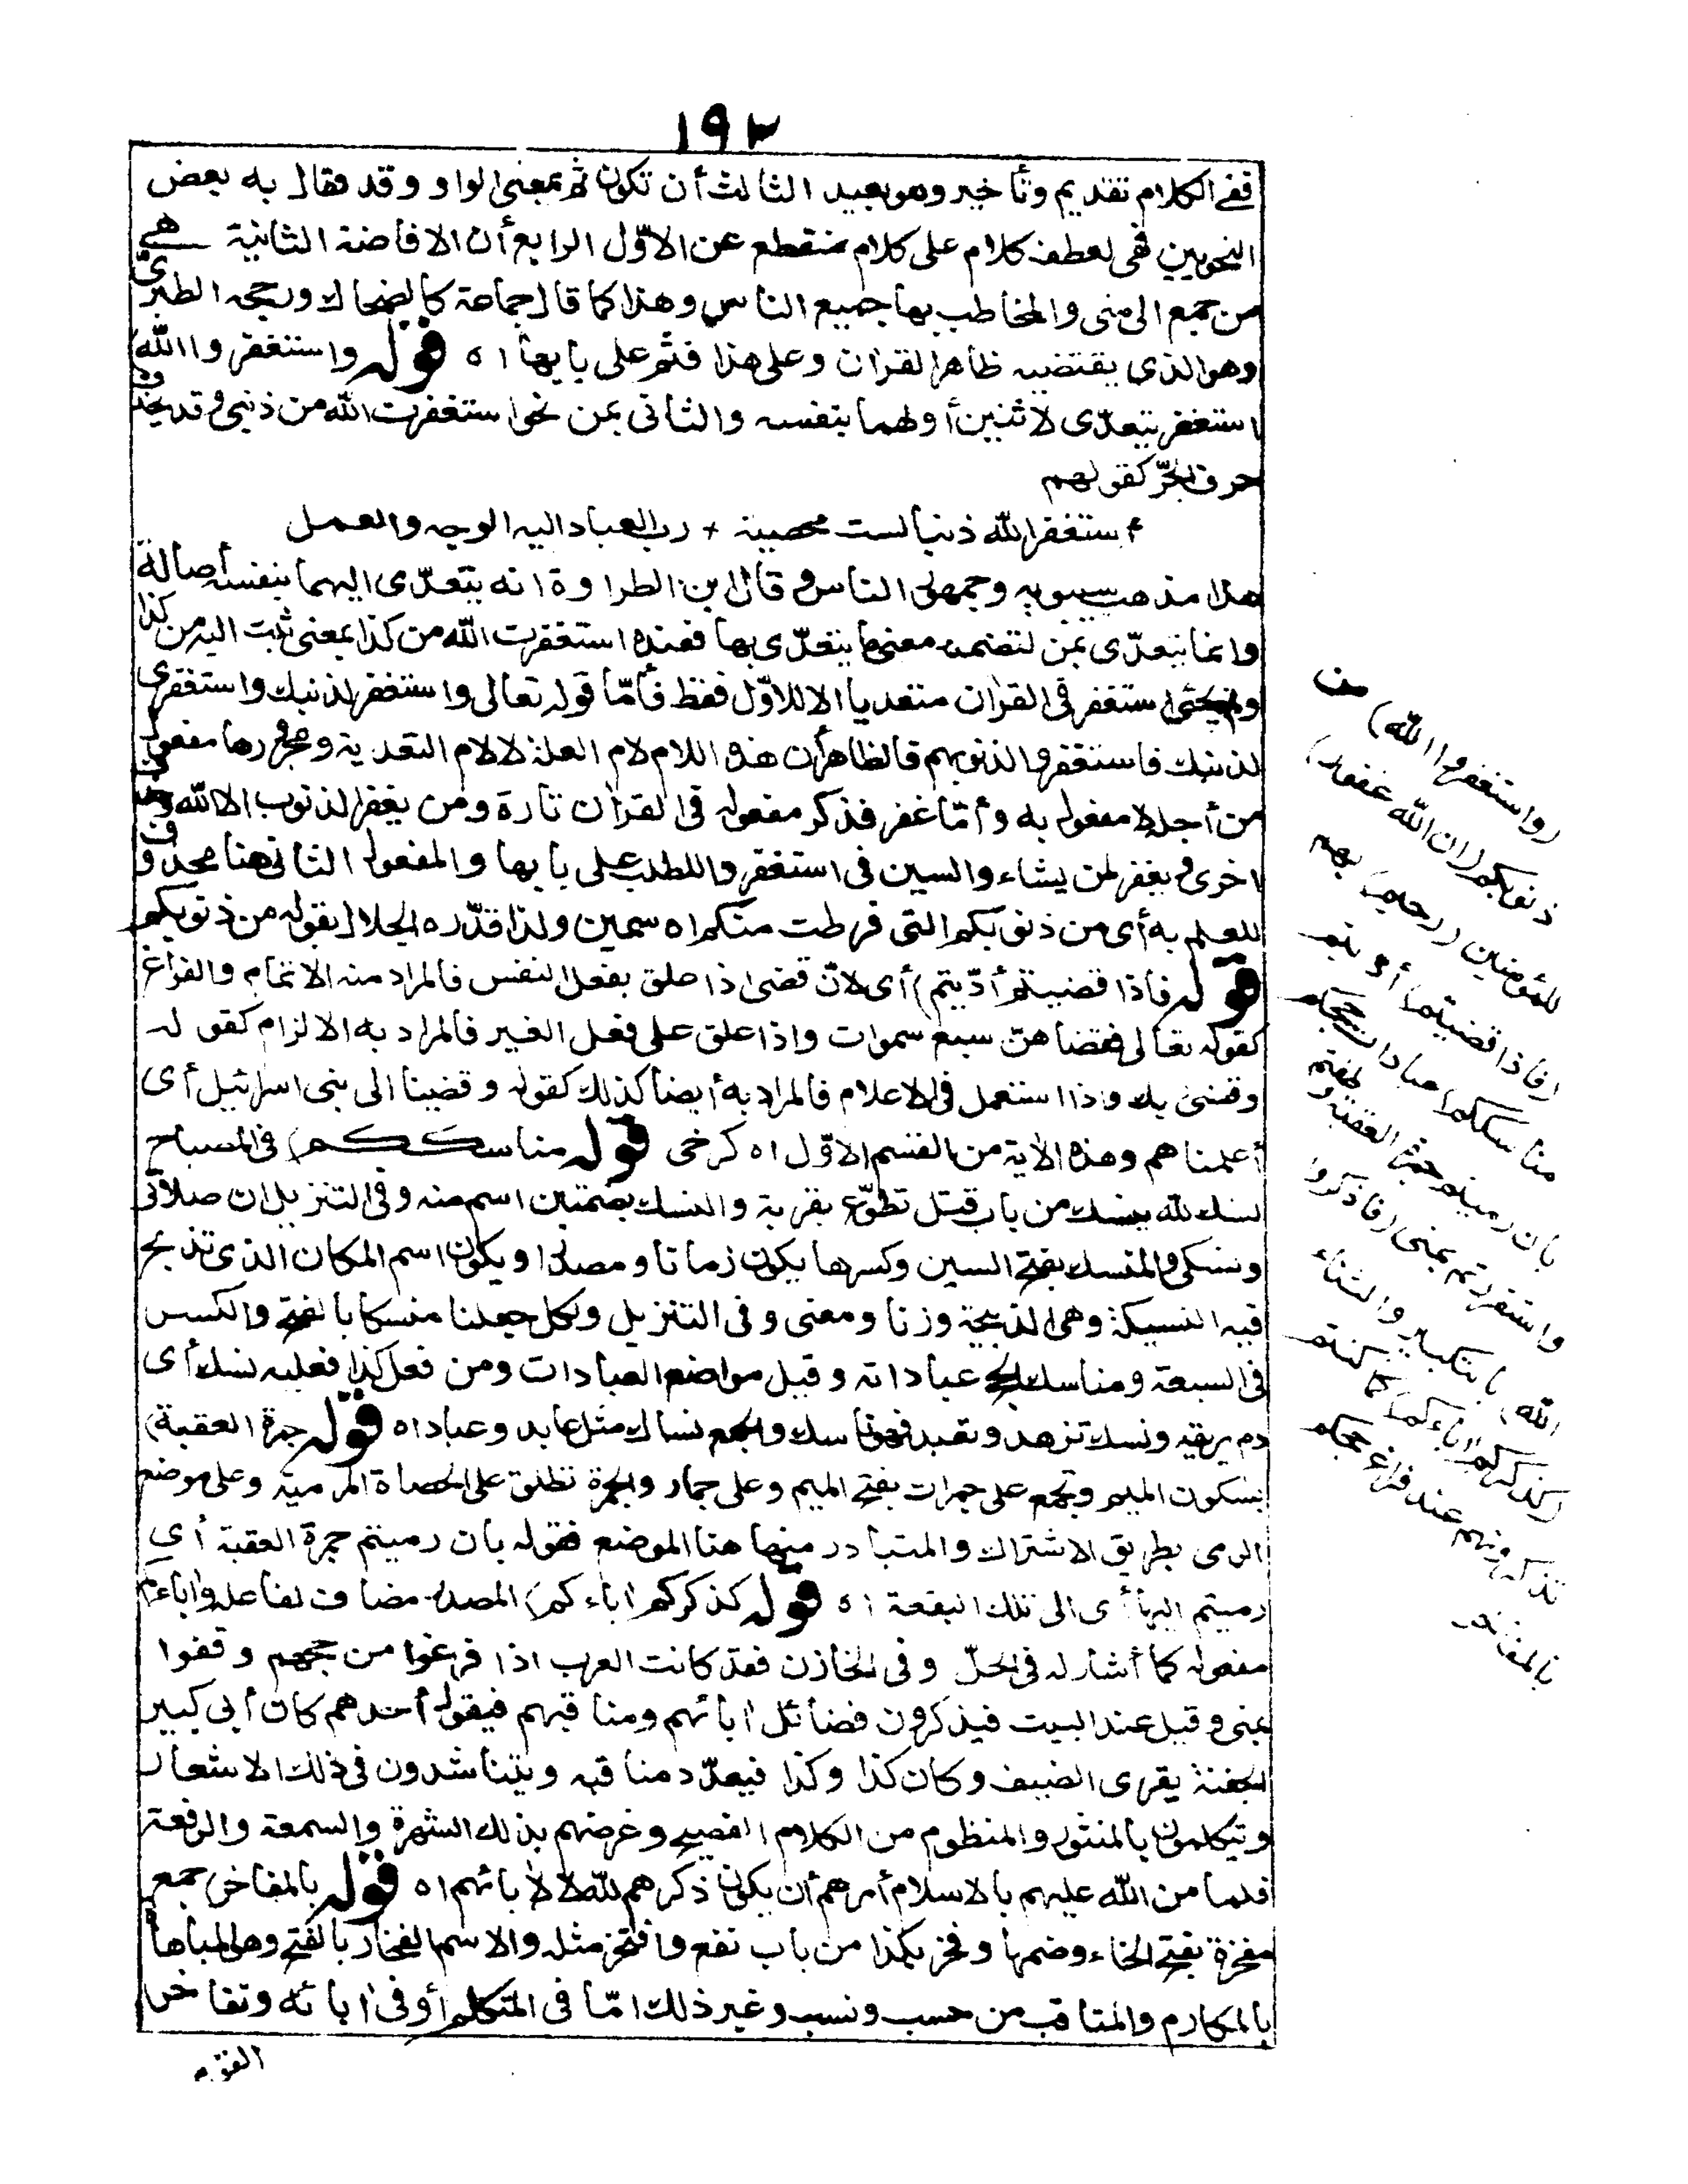 ١٩٢
ففى الكلام تقديم وتأخير وهو بعيد الثالث أن تكون ثم بمعنى الواو وقد قال به بعض
النحويين فهى لعطف كلام على كلام منقطع عن الاوّل الرابع أن الافاضة الثانية هى
من جمع الى منى والمخاطب بها جميع الناس وهذا كما قال جماعة كالضحاك ورجحه الطبرىّ
وهو الذى يقتضيه ظاهر القراٰن وعلى هذا فثم على بابها اه قوله واستغفروا الله)
استغفر يتعدّى لاثنين أولهما بنفسه والثانى بمن نحو استغفرت الله من ذنبى وقد يحذف
حرف الجرّ كقولهم
أستغفر الله ذنبا لست محصيه + رب العباد اليه الوجه والعمل
هذا مذهب سيبويه وجمهور الناس وقال ابن الطراوة انه يتعدّى اليهما بنفسه أصالة
وانما يتعدّى بمن لتضمنه معنى ما يتعدّى بها فعنده استغفرت الله من كذا بمعنى تبت اليه من كذا
ولم يجئ استغفر فى القراٰن متعديا الا للاوّل فقط فأمّا قوله تعالى واستغفر لذنبك واستغفرى
لذنبك فاستغفروا لذنوبهم فالظاهر أن هذه اللام لام العلة لا لام التعدية ومجرورها مفعول
من أجله لا مفعول به وأمّا غفر فذكر مفعوله فى القراٰن تارة ومن يغفر الذنوب الا الله وحذف
اخرى ويغفر لمن يشاء والسين فى استغفر واللطلب على بابها والمفعول الثانى هنا محذوف
للعلم به أى من ذنوبكم التى فرطت منكم اه سمين ولذا قدّره الجلال بقوله من ذنوبكم
قوله فاذا قضيتم أدّيتم) أى لانّ قضى اذا علق بفعل النفس فالمراد منه الاتمام والفراغ
كقوله تعالى فقضاهنّ سبع سموات واذا علق على فعل الغير فالمراد به الالزام كقوله
وقضى ربك واذا استعمل فى الاعلام فالمراد به أيضا كذلك كقوله وقضينا الى بنى اسرائيل أى
أعلمناهم وهذه الاٰية من القسم الاوّل اه كرخى قوله مناسككم) فى المصباح
نسك لله ينسك من باب قتل تطوّع بقربة والنسك بضمتين اسم منه وفى التنزيل ان صلاتى
ونسكى والمنسك بفتح السين وكسرها يكون زمانا ومصدرا ويكون اسم المكان الذى تذبح
فيه النسيكة وهى الذبيحة وزنا ومعنى وفى التنزيل ولكل جعلنا منسكا بالفتح والكسر
فى السبعة ومناسك الحج عباداته وقيل مواضع العبادات ومن فعل كذا فعليه نسك أى
دم يريقه ونسك تزهد وتعبد فهو ناسك والجمع نساك مثل عابد وعباد اه قوله جمرة العقبة)
بسكون الميم وتجمع على جمرات بفتح الميم وعلى جمار والجمرة تطلق على الحصاة المرمية وعلى موضع
الرمى بطريق الاشتراك والمتبادر منها هنا الموضع فقوله بان رميتم جمرة العقبة أى
رميتم اليها أى الى تلك البقعة اه قوله كذكركم اٰباءكم) المصدر مضاف لفاعله واٰباءكم
مفعوله كما أشار له فى الحلّ وفى الخازن فقد كانت العرب اذا فرغوا من حجهم وقفوا
بمنى وقيل عند البيت فيذكرون فضائل اٰبائهم ومناقبهم فيقول أحدهم كان أبى كبير
الجفنة يقرى الضيف وكان كذا وكذا فيعدّد مناقبه ويتناشدون فى ذلك الاشعار
ويتكلمون بالمنثور والمنظوم من الكلام الفصيح وغرضهم بذلك الشهرة والسمعة والرفعة
فلما من الله عليهم بالاسلام أمرهم أن يكون ذكرهم لله لا لاٰبائهم اه قوله بالمفاخر) جمع
مفخرة بفتح الخاء وضمها وفخر بكذا من باب نفع وافتخر مثله والاسم الفخار بالفتح وهو المباهاة
بالمكارم والمناقب من حسب ونسب وغير ذلك امّا فى المتكلم أو فى اٰبائه وتفاخر
القوم
(واستغفروا الله) من
ذنوبكم (ان الله غفور)
للمؤمنين (رحيم) بهم
(فاذا قضيتم) أديتم
(مناسككم) عبادات حجكم
بان رميتم جمرة العقبة وطفتم
واستقررتم بمنى (فاذكروا
الله) بالتكبير والثناء
(كذكركم اٰباءكم) كما كنتم
تذكرونهم عند فراغ حجكم
بالمفاخر